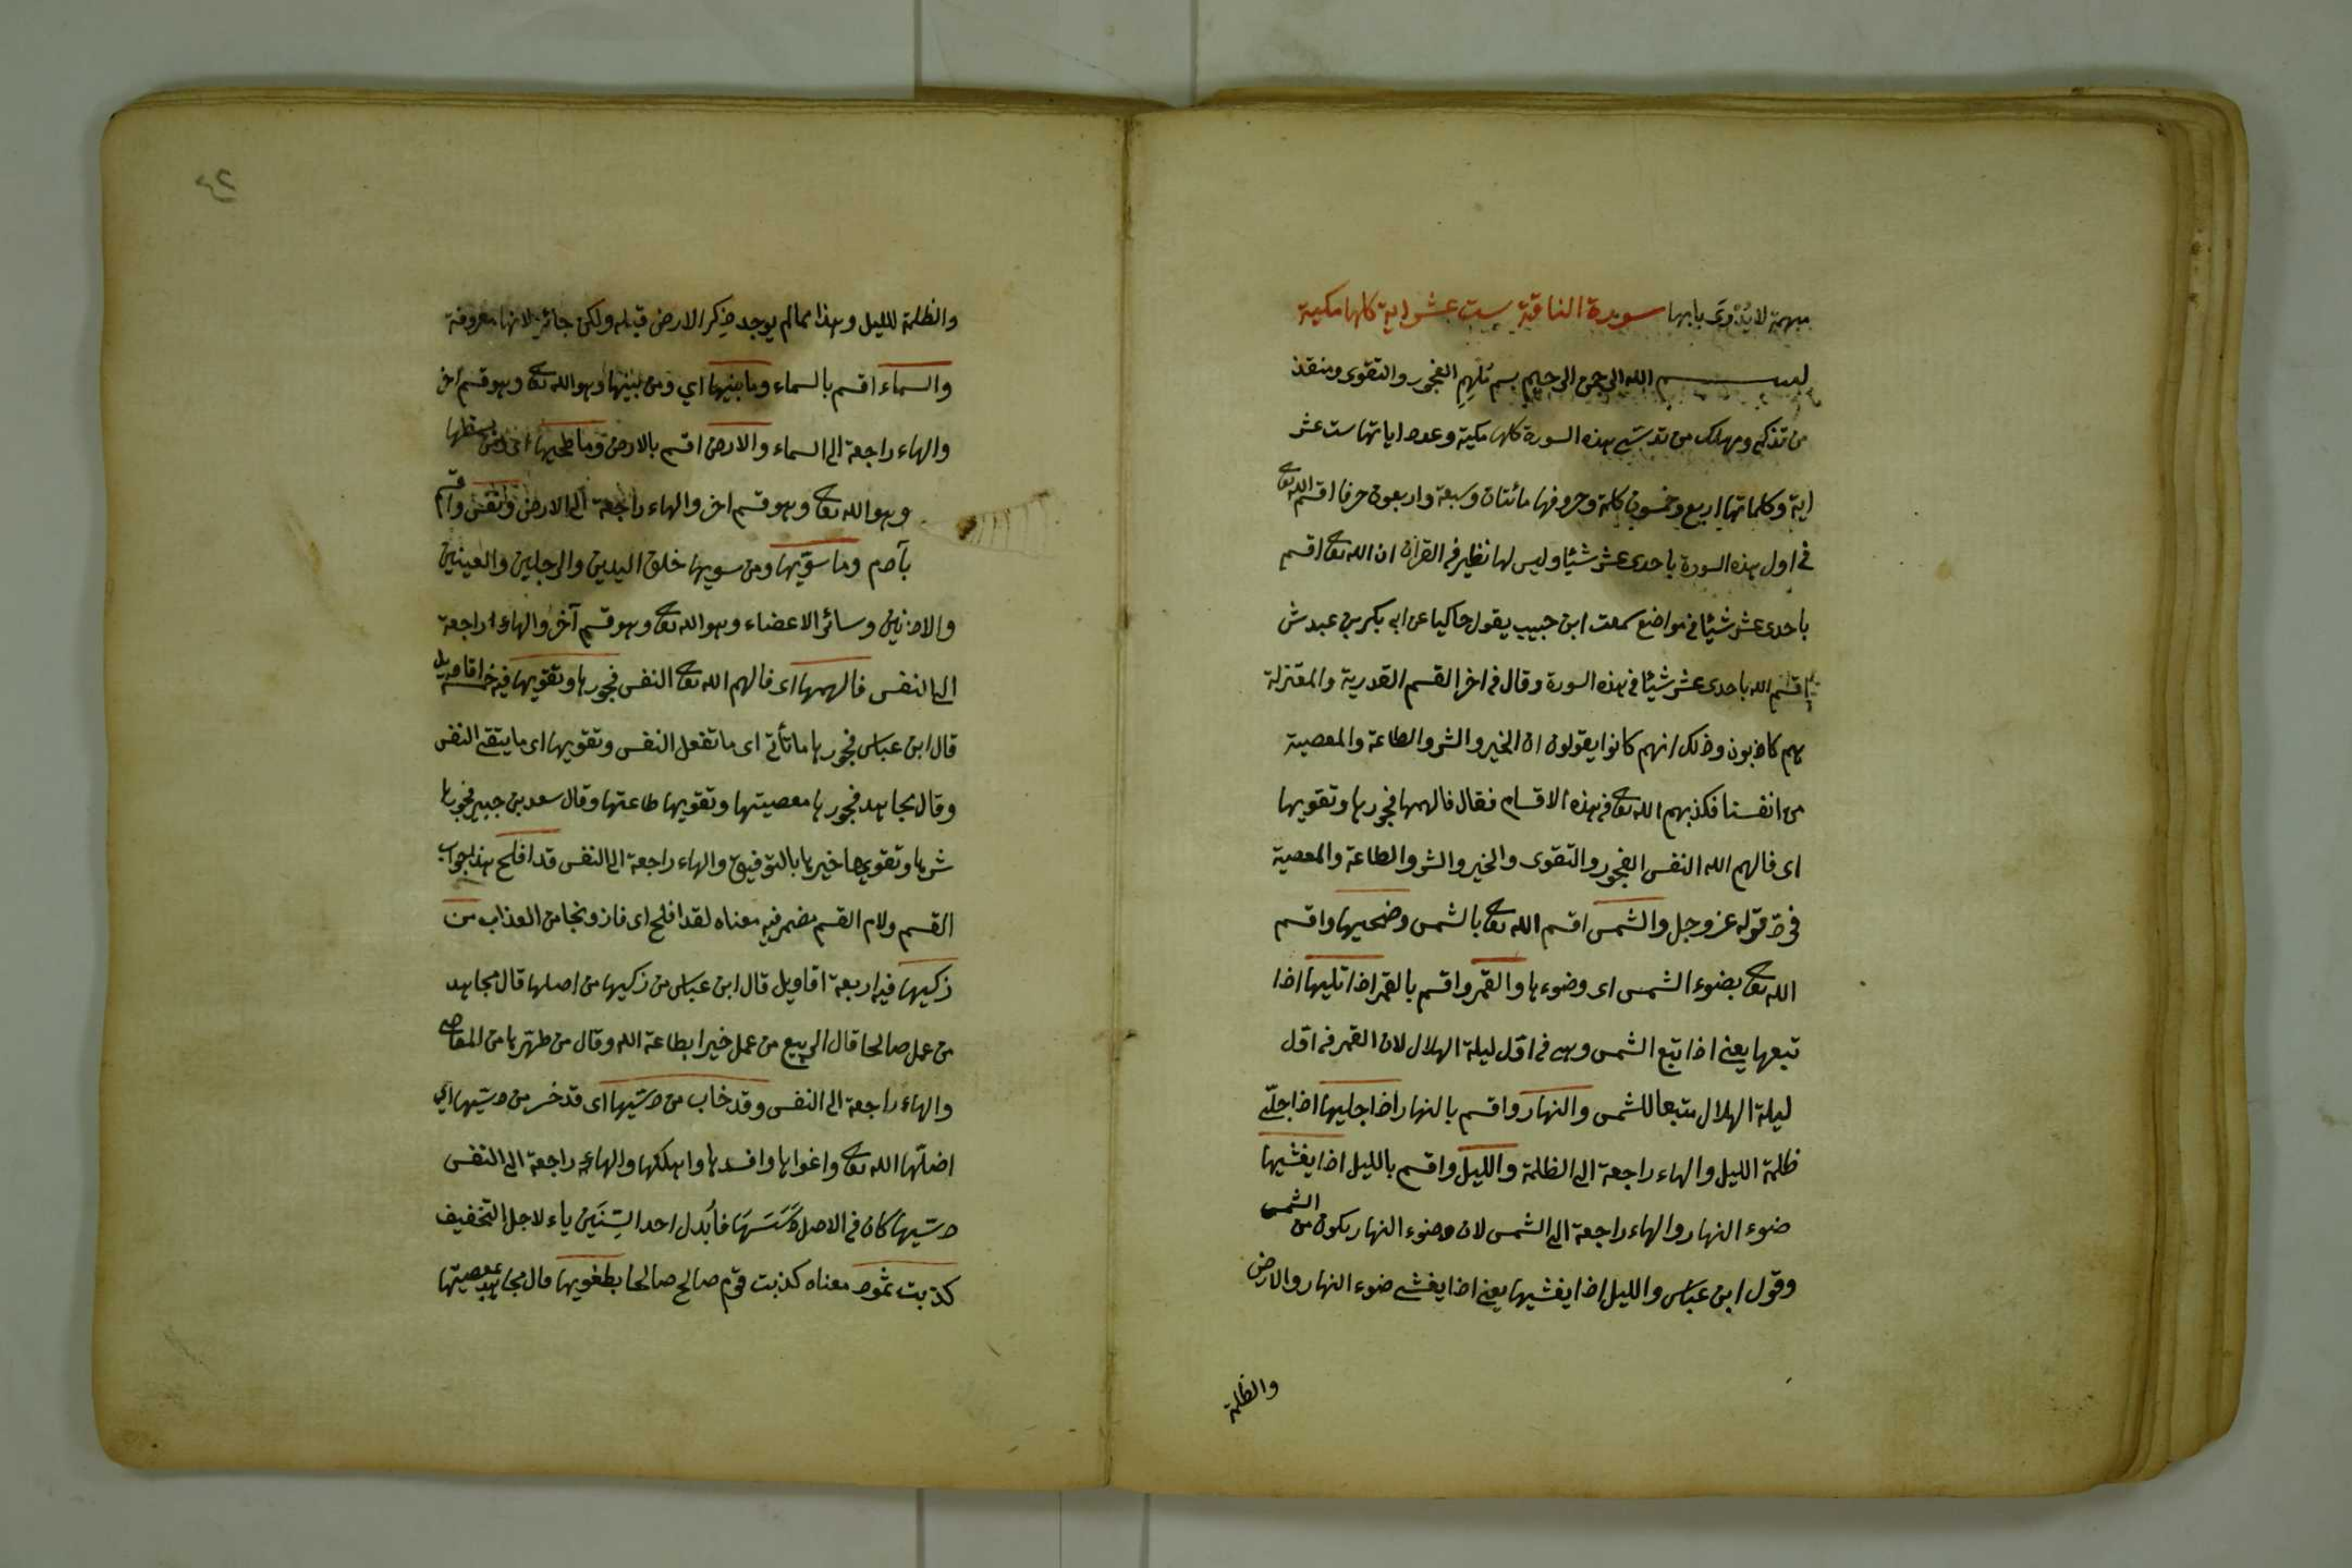 مبهمة لا يُدْرَى بابها سورة الناقة ست عشر اية كلها مكية
بسم الله الرحمن الرحيم بسم مُلهِم الفجور والتقوى ومنقذ
من تذكى ومهلك من تدسّى هذه السورة كلها مكية وعدد اياتها ست عشر
اية وكلماتها اربع وخمسون كلمة وحروفها مائتان وسبعة واربعون حرفا اقسم الله تعالى
في اول هذه السورة باحدى عشر شيئا وليس لها نظير في القران ان الله تعالى اقسم
باحدى عشر شيئا في مواضع سمعت ابن حبيب يقول حاكيا عن ابى بكر بن عبدش
اقسم الله باحدى عشر شيئا في هذه السورة وقال في اخر القسم القدرية والمعتزلة
هم كاذبون وذلك انهم كانوا يقولون ان الخير والشر والطاعة والمعصية
من انفسنا فكذبهم الله تعالى في هذه الاقسام فقال فالهمها فجورها وتقويها
اى فالهم الله النفس الفجور والتقوى والخير والشر والطاعة والمعصية
قوله عز وجل والشمس اقسم الله تعالى بالشمس وضحيها واقسم
الله تعالى بضوء الشمس اى وضوءها والقمر واقسم بالقمر اذا تليها اذا
تبعها يعنى اذا تبع الشمس وهى في اوّل ليلة الهلال لان القمر في اوّل
ليلة الهلال متبعا للشمس والنهار واقسم بالنهار اذا جليها اذا جلّى
ظلمة الليل والهاء راجعة الى الظلمة والليل واقسم بالليل اذا يغشيها
ضوء النهار والهاء راجعة الى الشمس لان ضوء النهار يكون من الشمس
وقول ابن عباس والليل اذا يغشيها يعنى اذا يغشى ضوء النهار والارض
والظلمة
والظلمة لليل وهذا مما لم يوجد ذكر الارض قبله ولكن جائز لانها معروفة
والسماء اقسم بالسماء وما بنيها اي ومن بنيها وهو الله تعالى وهو قسم اخر
والهاء راجعة الى السماء والارض اقسم بالارض وما طحيها اى ومن بسطها
وهو الله تعالى وهو قسم اخر والهاء راجعة الى الارض ونفس واقسم
بآدم وما سوّيها ومن سويها خلق اليدين والرجلين والعينين
والاذنين وسائر الاعضاء وهو الله تعالى وهو قسم آخر والهاء راجعة
الى النفس فالهمها اى فالهم الله تعالى النفس فجورها وتقويها فيه خمسة اقاويل
قال ابن عباس فجورها ما تأتى اى ما تفعل النفس وتقويها اى ما يتقى النفس
وقال مجاهد فجورها معصيتها وتقويها طاعتها وقال سعد بن جبير فجورها
شرها وتقويها خيرها بالتوفيق والهاء راجعة الى النفس قد افلح هذا جواب
القسم ولام القسم مضمر فيه معناه لقد افلح اى فاز ونجا من العذاب من
زكيها فيه اربعة اقاويل قال ابن عباس من زكيها من اصلها قال مجاهد
من عمل صالحا قال الربيع من عمل خيرا بطاعة الله وقال من طهّرها من المعاصى
والهاء راجعة الى النفس وقد خاب من دسّيها اى قد خسر من دسّيها اي
اضلّها الله تعالى واغواها وافسدها واهلكها والهاء راجعة الى النفس
دسّيها كان في الاصل دَسَّسَهَا فأبدل احد السّنَين ياء لاجل التخفيف
كذبت ثمود معناه كذبت قوم صالح صالحا بطغويها قال مجاهد بمعصيتها